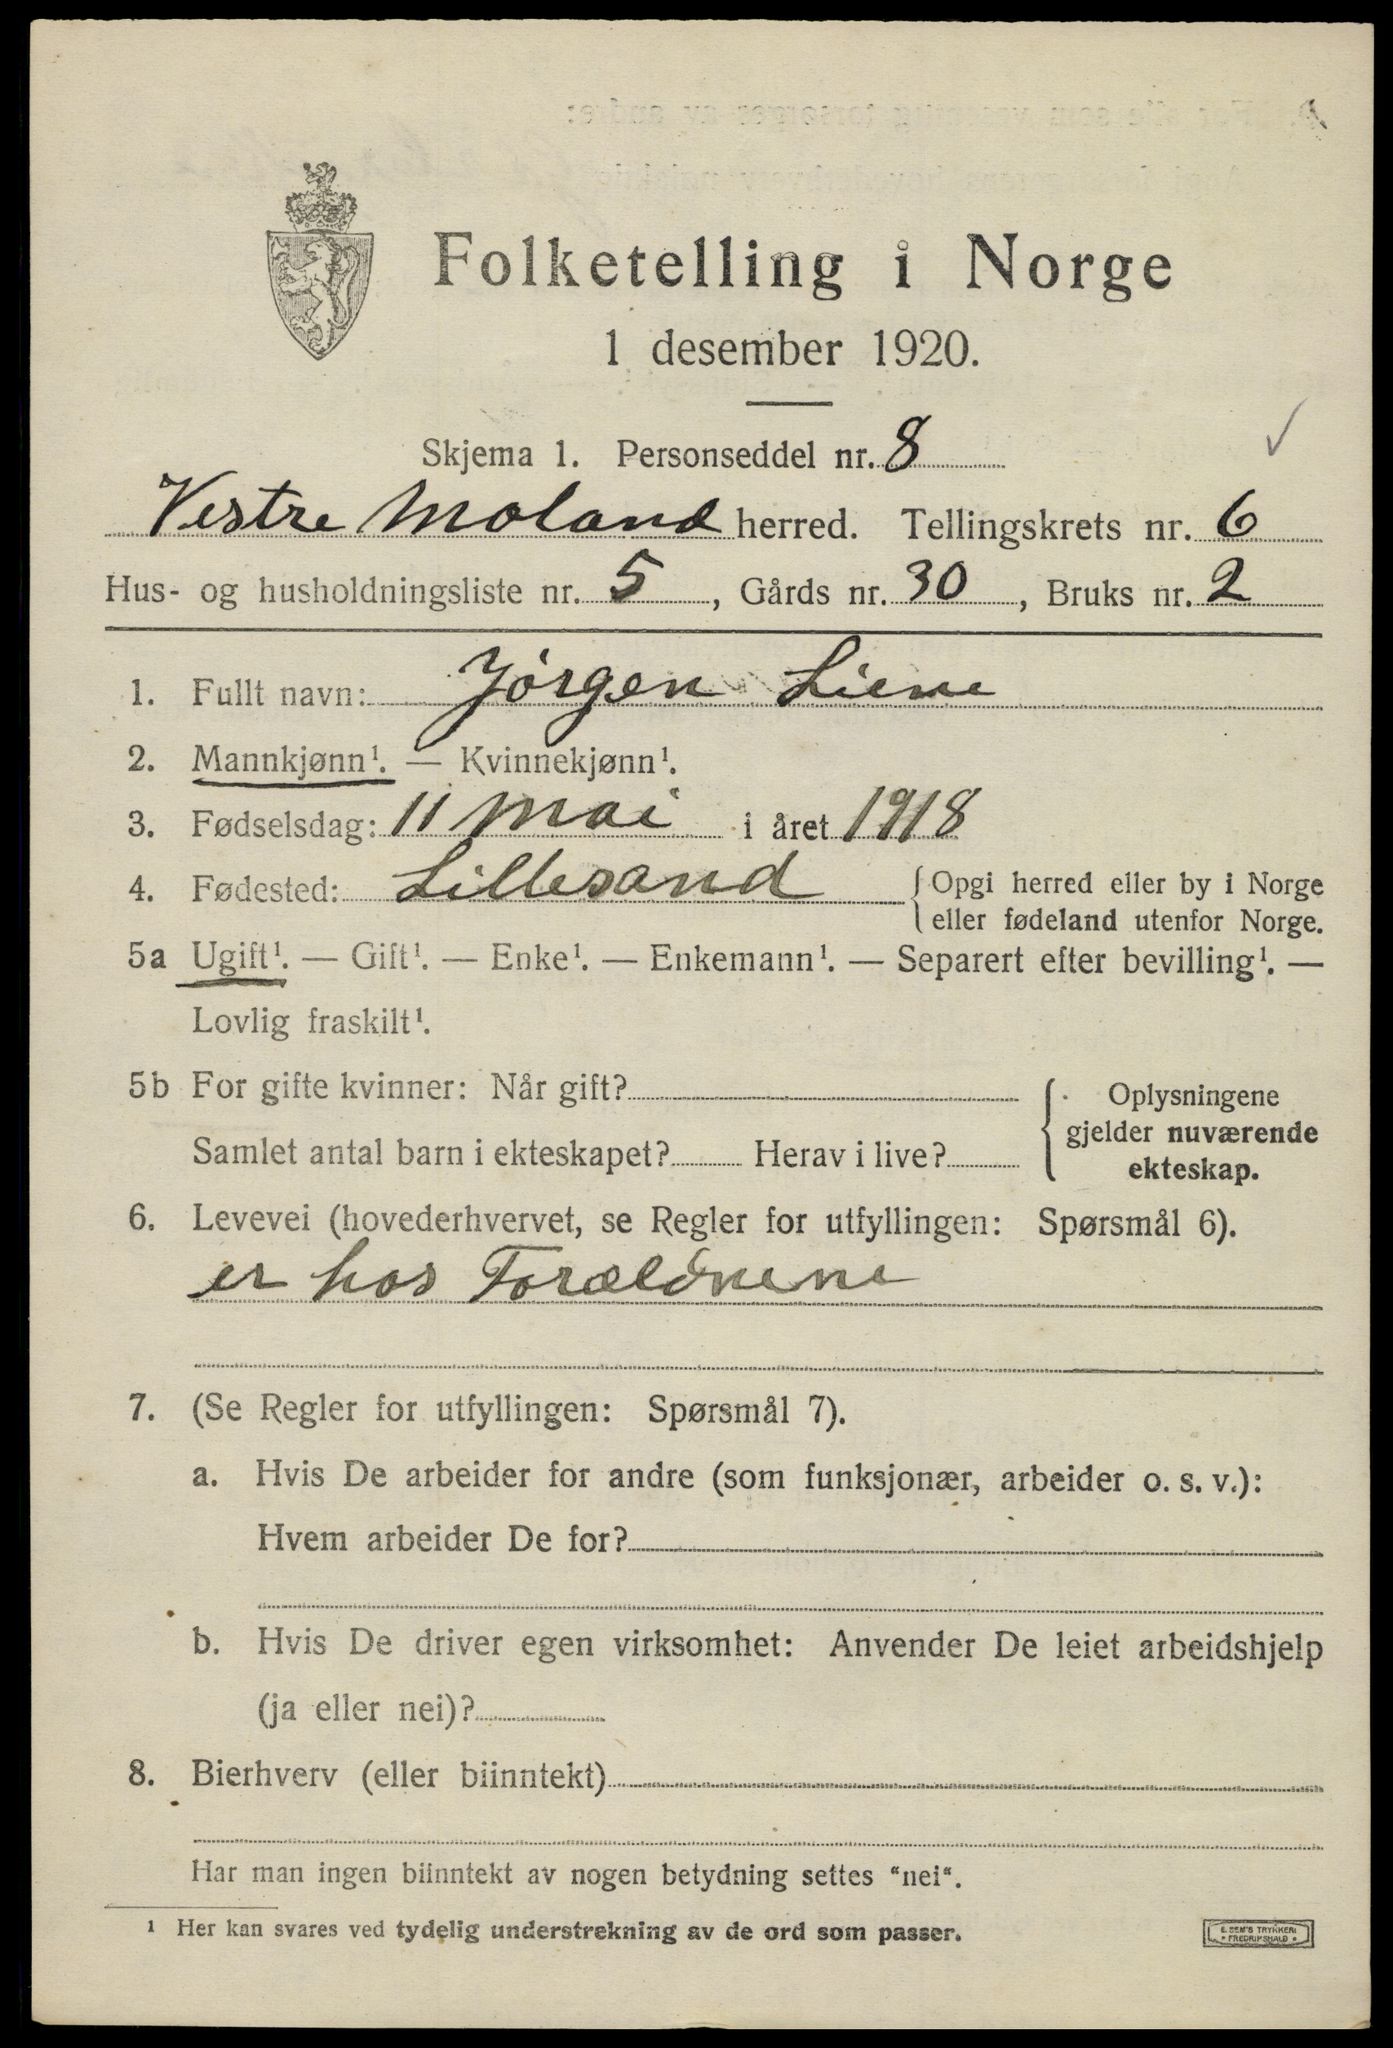 Folketelling i Norge
1 desember 1920.
Skjema 1. Personseddel nr. 8
Vestre Moland herred. Tellingskrets nr. 6
Hus- og husholdningsliste nr. 5, Gårds nr. 30, Bruks nr. 2
1. Fullt navn: Jörgen
2. Mannkjønn¹. — Kvinnekjønn¹.
3. Fødselsdag: 11 Mai i året 1918
4. Fødested: Lillesand {Opgi herred eller by i Norge
eller fødeland utenfor Norge.
5a Ugift¹. — Gift¹. — Enke¹. — Enkemann¹. — Separert efter bevilling¹. —
Lovlig fraskilt¹.
5b For gifte kvinner: Når gift?
Samlet antal barn i ekteskapet? Herav i live?
Oplysningene
gjelder nuværende
ekteskap.
6. Levevei (hovederhvervet, se Regler for utfyllingen: Spørsmål 6).
er hos Forældrene
7. (Se Regler for utfyllingen: Spørsmål 7).
a. Hvis De arbeider for andre (som funksjonær, arbeider o. s. v.):
Hvem arbeider De for?
b. Hvis De driver egen virksomhet: Anvender De leiet arbeidshjelp
(ja eller nei)?
8. Bierhverv (eller biinntekt)
Har man ingen biinntekt av nogen betydning settes "nei".
¹ Her kan svares ved tydelig understrekning av de ord som passer.
E. SEM'S TRYKKERI
FREDRIKSHALD